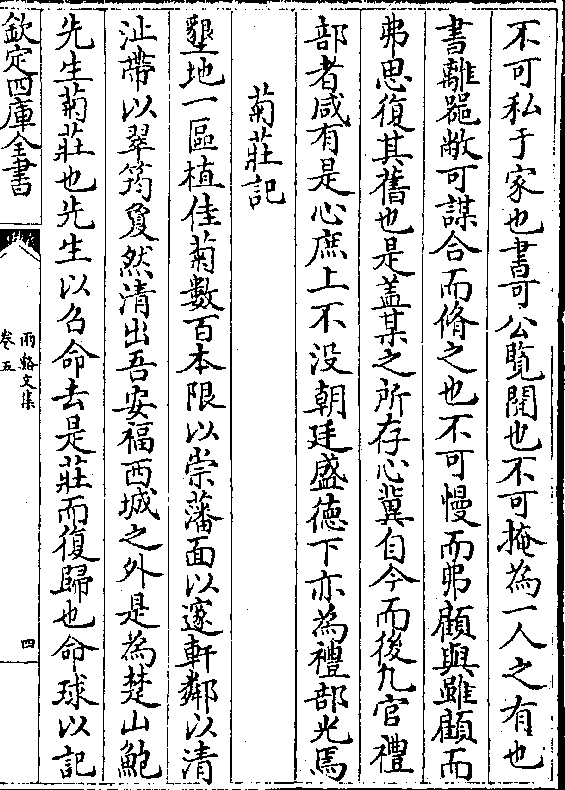 不可私于家也書可公覽閱也不可掩為一人之有也
書離䙝敝可謀合而脩之也不可慢而弗顧與雖顧而
弗思復其舊也是盖某之所存心冀自今而後凡官禮
部者咸有是心庶上不没朝廷盛徳下亦為禮部光焉
菊莊記
墾地一區植佳菊數百本限以崇藩面以邃軒鄰以清
沚帶以翠筠夐然清出吾安福西城之外是為楚山鮑
先生菊莊也先生以召命去是莊而復歸也命球以記
欽定四庫全書
兩谿文集
卷五
四